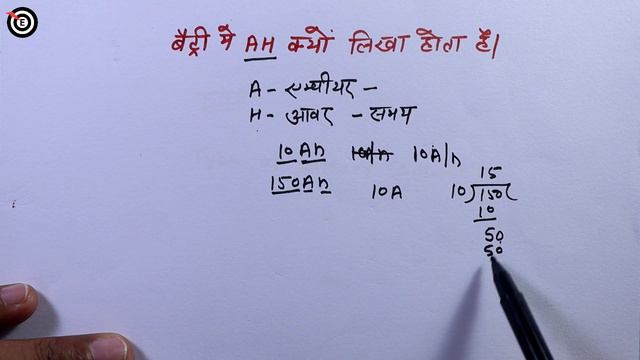 बैट्री में AH क्यों लिखा होता है।
A - एम्पीयर -
H - आवर - समय
10Ah 10A/h
150Ah 10A
15
10)150(
10
50
50
E